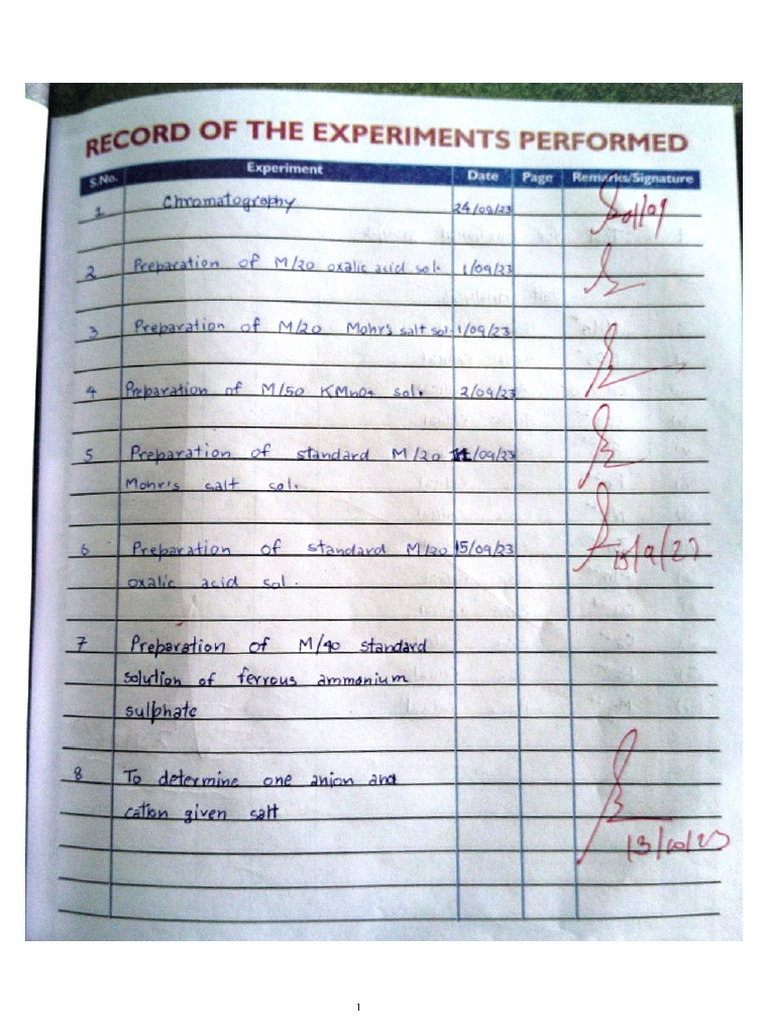 RECORD OF THE EXPERIMENTS PERFORMED
S.No. Experiment Date Page Remarks/Signature
1 Chromatography 24/08/23 01/09
2 Preparation of M/20 oxalic acid sol. 1/09/23
3 Preparation of M/20 Mohr's salt sol. 1/09/23
4 Preparation of M/50 KMnO4 sol. 2/09/23
5 Preparation of standard M/20 /09/23
Mohr's salt sol.
6 Preparation of standard M/20 15/09/23 15/9/23
oxalic acid sol.
7 Preparation of M/40 standard
solution of ferrous ammonium
sulphate
8 To determine one anion and
cation given salt
13/10/23
1